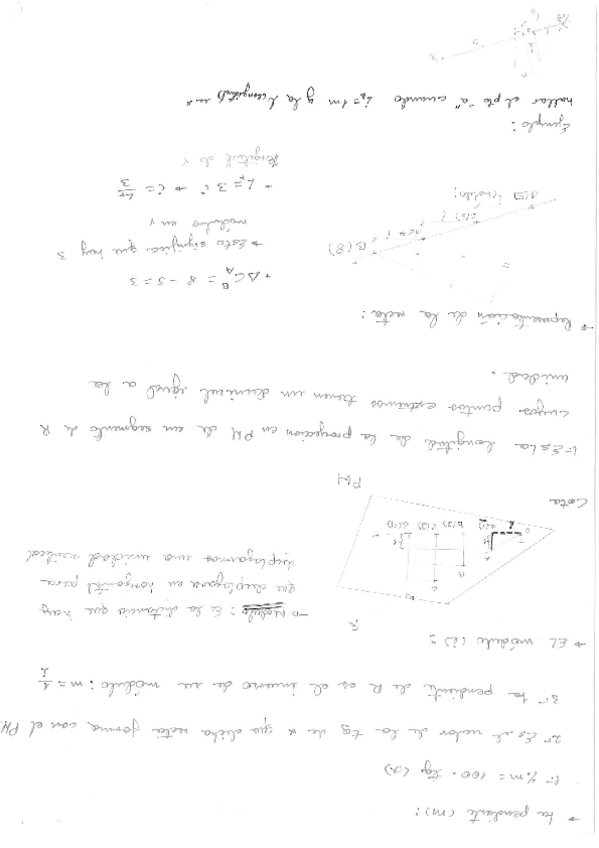 → La pendiente (m):
1º- % m = 100 · tg (α)
2º Es el valor de la tg de α que dicha recta forma con el PH
3º- La pendiente de R es el inverso de su módulo: m = 1/i
→ EL módulo (i):
→ Módulo: Es la distancia que hay
que desplazarse en horizontal para
desplazarnos una unidad vertical
PH
Cota
1º- Es la longitud de la proyección en PH de un segmento de R
cuyos puntos extremos tienen un desnivel igual a la
unidad.
→ Representación de la recta:
B (8)
→ Esto significa que hay 3
módulos en r
Longitud de r
Ejemplo:
hallar el pto "a" cuando i = 1m y la longitud